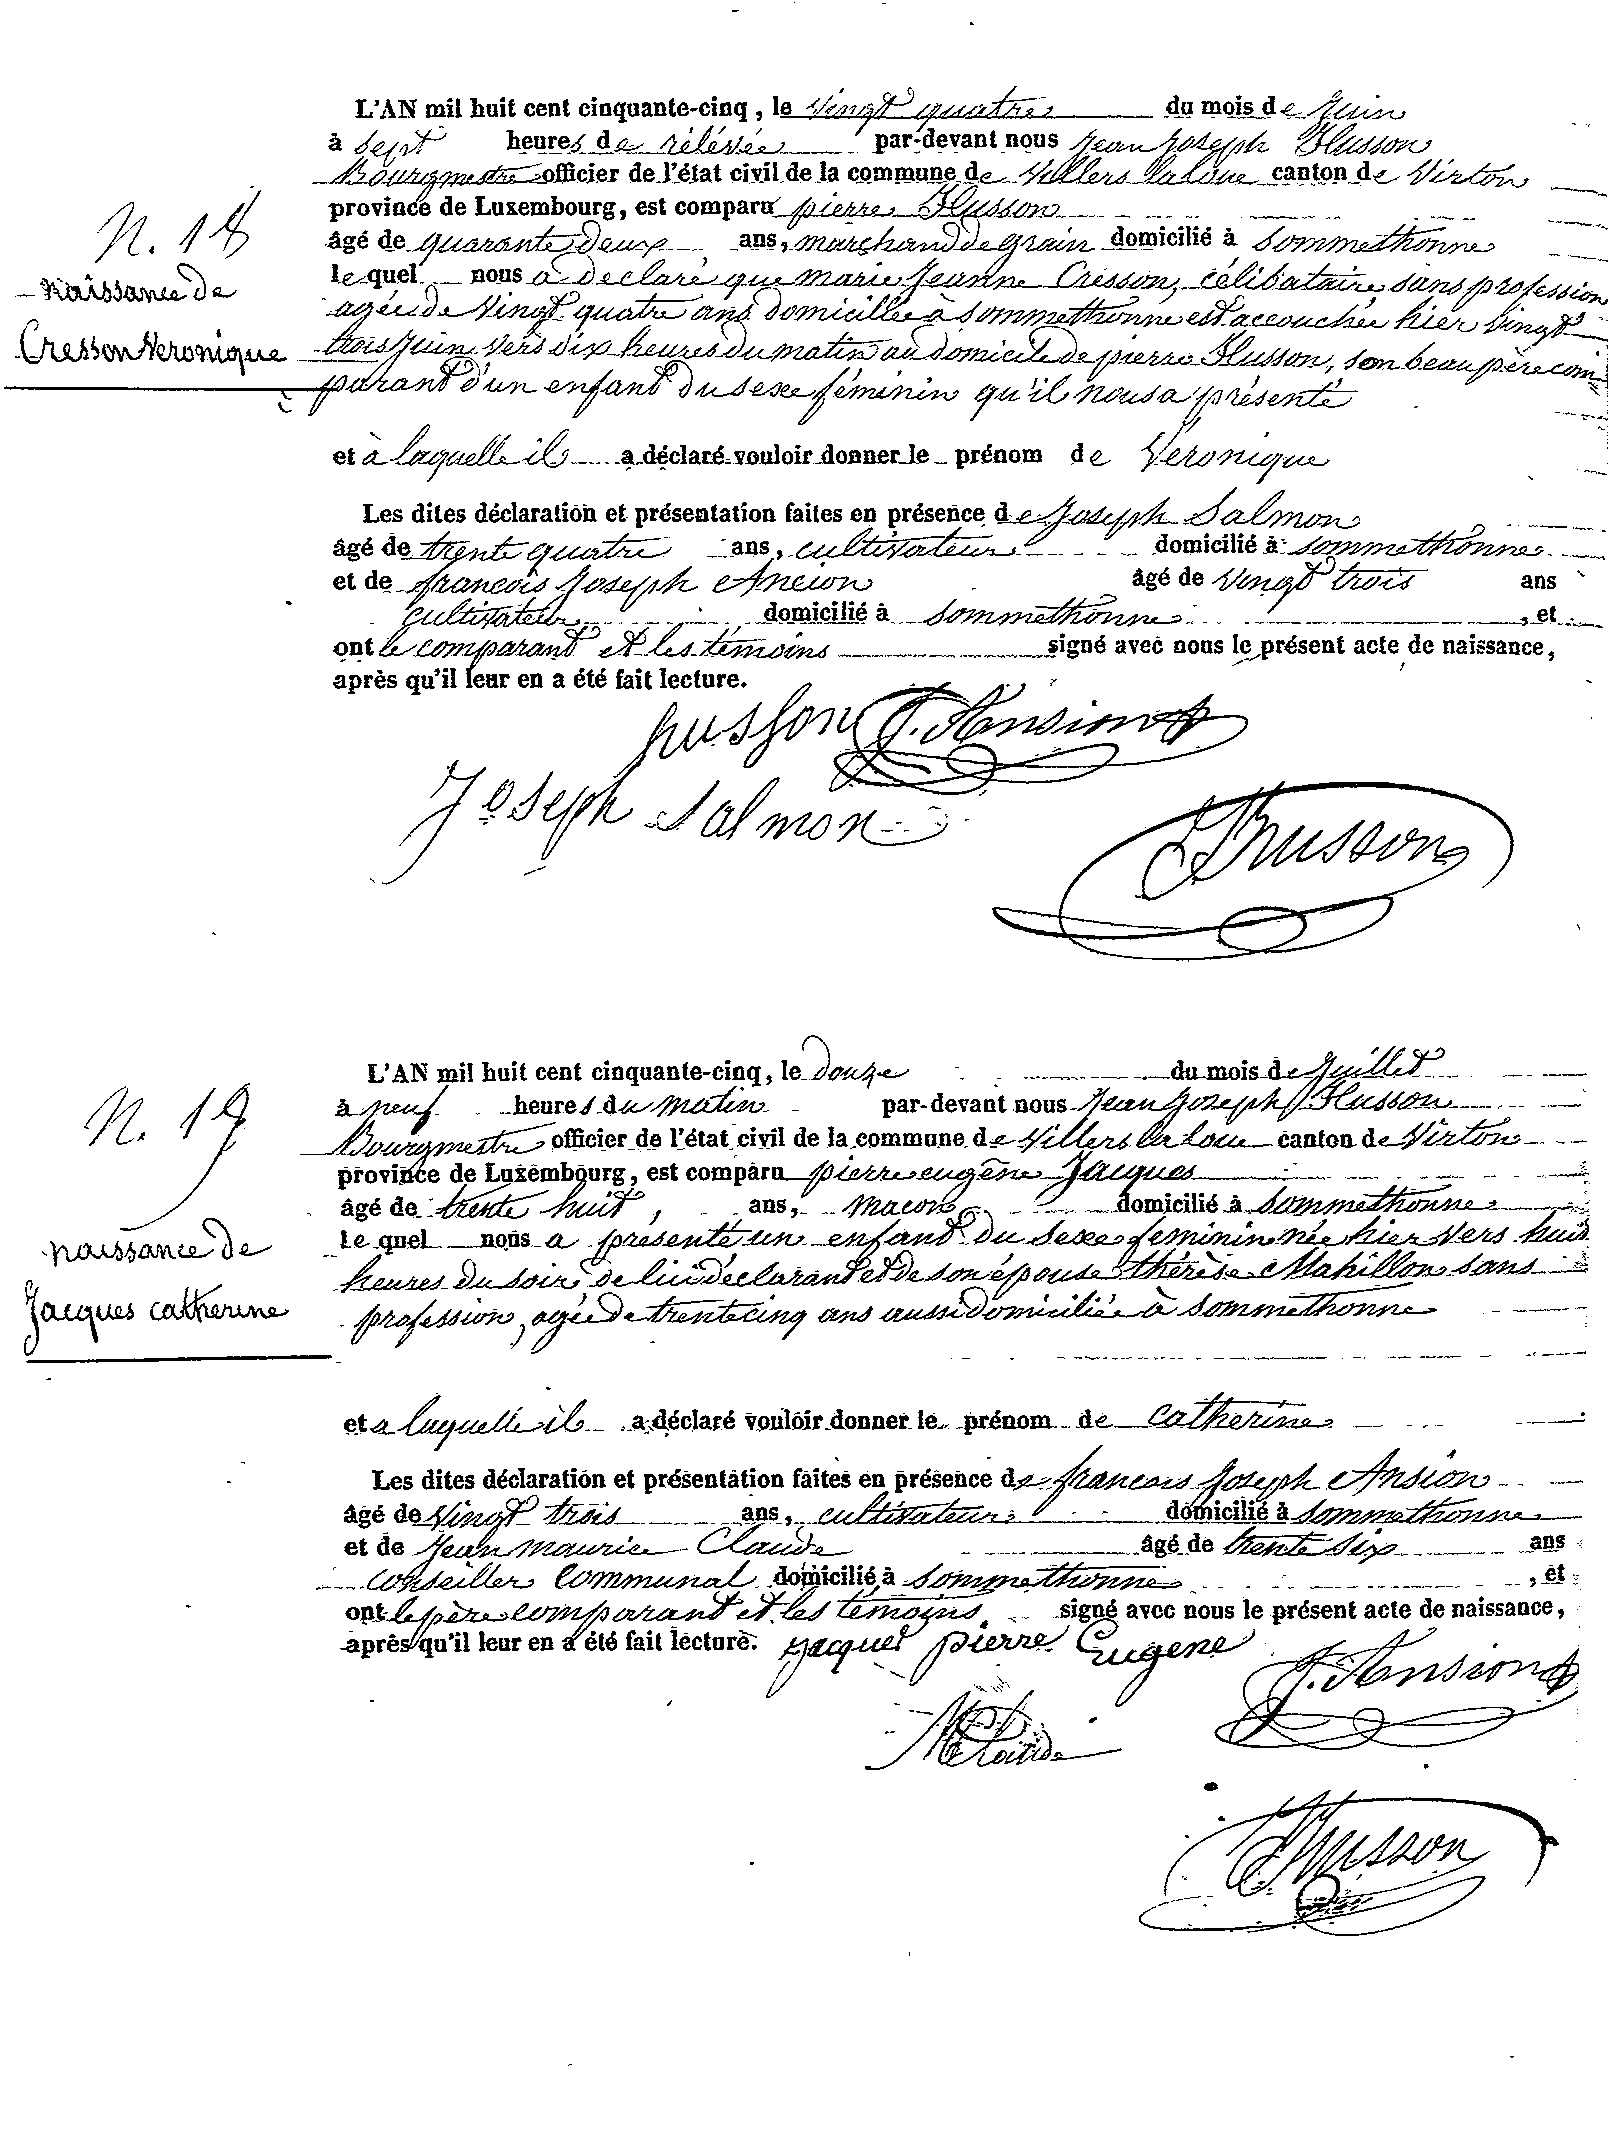 L'AN mil huit cent cinquante-cinq, le vingt quatre du mois de Juin
à sept heures de rélévée par-devant nous Jean Joseph Husson
Bourgmestre officier de l'état civil de la commune de Villers la loue canton de Virton
province de Luxembourg, est comparu pierre Husson
âgé de quarante deux ans, marchand de grain domicilié à Sommethonne
le quel nous a declaré que marie Jeanne Cresson, célibataire, sans profession
agée de vingt quatre ans domiciliée à Sommethonne est accouchée hier vingt
trois Juin vers dix heures du matin au domicile de pierre Husson, son beau père com
parant d'un enfant du sexe féminin qu'il nous a présenté
N. 18
naissance de
Cresson Veronique
et à laquelle il a déclaré vouloir donner le prénom de Veronique
Les dites déclaration et présentation faites en présence de Joseph Salmon
âgé de trente quatre ans, cultivateur domicilié à Sommethonne
et de francois Joseph Ancion âgé de vingt trois ans
cultivateur domicilié à Sommethonne, et
ont le comparant et les témoins signé avec nous le présent acte de naissance,
après qu'il leur en a été fait lecture.
husson J. Ansion
Joseph Salmon
JJhusson
L'AN mil huit cent cinquante-cinq, le douze du mois de Juillet
à neuf heures du matin par-devant nous Jean Joseph Husson
Bourgmestre officier de l'état civil de la commune de Villers la loue canton de Virton
province de Luxembourg, est comparu pierre eugène Jacques
âgé de trente huit, ans, macon domicilié à Sommethonne
le quel nous a présenté un enfant du sexe feminin née hier vers huit
heures du soir, de lui déclarant et de son épouse thérèse Mahillon sans
profession, agée de trente cinq ans aussi domiciliée à Sommethonne
N. 19
naissance de
Jacques catherine
et a laquelle il a déclaré vouloir donner le prénom de catherine
Les dites déclaration et présentation faites en présence de francois Joseph Ansion
âgé de vingt trois ans, cultivateur domicilié à Sommethonne
et de Jean maurice Claude âgé de trente six ans
conseiller communal domicilié à Sommethonne, et
ont le père comparant et les témoins signé avec nous le présent acte de naissance,
après qu'il leur en a été fait lecture. Jacques pierre Eugene
J. Ansion
MClaude
JJhusson